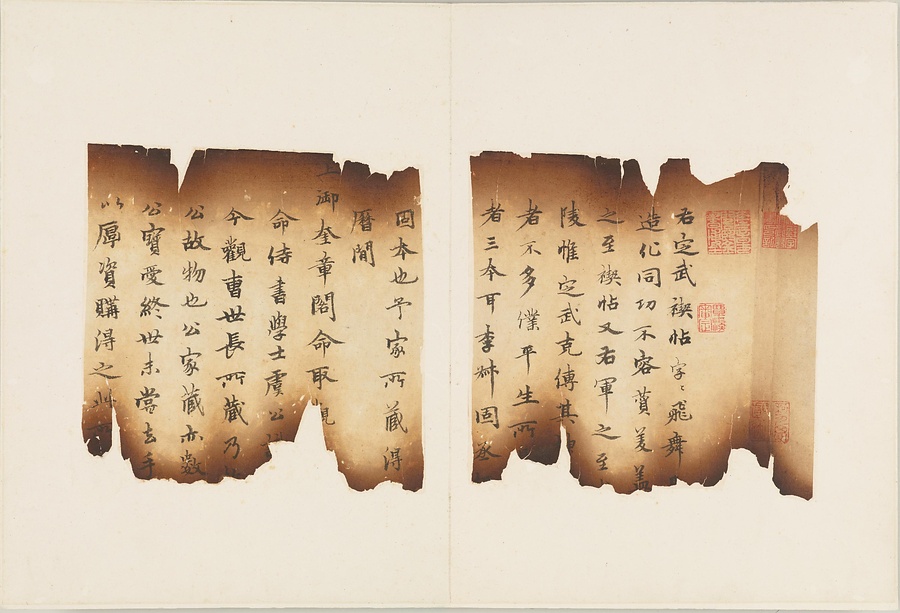 右定武禊帖字〻飛舞
造化同功不容賛美盖
之至禊帖又右軍之至
陵惟定武克傳其
者不多僕平生所
者三本耳李叔固丞
固本也予家所藏得
曆間
上御奎章閣命取
命侍書學士虞公
今觀曺世長所藏乃
公故物也公家藏亦數
公寶愛終世未嘗去手
以厚資購得之此